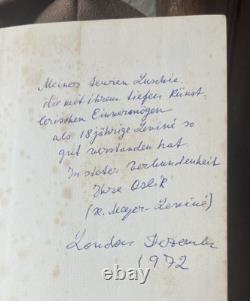 Meiner teuren Luschie
die mit ihrem tiefen Künst-
lerischen Einvermögen
als 18jährige Leviné so
gut verstanden hat.
In steter Verbundenheit
Ihre
(R. Meyer-Leviné)
London Dezember
1972